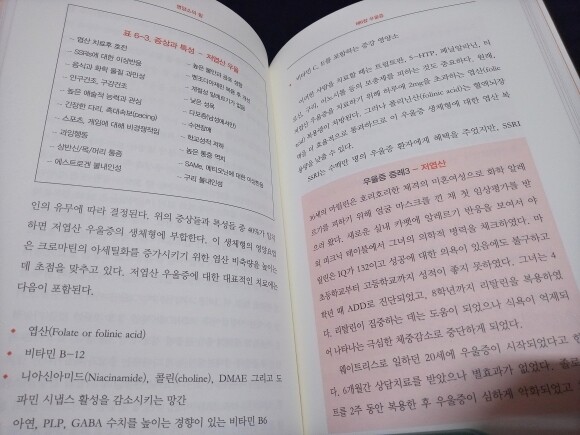 영양소의 힘
표 6-3. 증상과 특성 - 저엽산 우울
- 엽산 치료후 호전
- SSRIs에 대한 이상반응
- 음식과 화학 물질 과민성
- 안구건조, 구강건조
- 높은 예술적 능력과 관심
- 긴장한 다리, 흑대속보(pacing)
- 스포츠, 게임에 대해 비경쟁적임
- 과잉행동
- 상반신/목/머리 통증
- 에스트로겐 불내인성
- 높은 불안과 공포 성향
- 벤조디아제핀 복용 후 호전
- 계절성 알레르기가 없음
- 낮은 성욕
- 다모증(남성에서만)
- 수면장애
- 학교성적 저하
- 높은 통증 역치
- SAMe, 메티오닌에 대한 이상반응
- 구리 불내인성
인의 유무에 따라 결정된다. 위의 증상들과 특성들 중 40%가 일치
하면 저엽산 우울증의 생체형에 부합한다. 이 생체형의 영양요법
은 크로마틴의 아세틸화를 증가시키기 위한 엽산 비축량을 높이는
데 초점을 맞추고 있다. 저엽산 우울증에 대한 대표적인 치료에는
다음이 포함된다.
• 엽산(Folate or folinic acid)
• 비타민 B-12
• 니아신아미드(Niacinamide), 콜린(choline), DMAE 그리고 도
파민 시냅스 활성을 감소시키는 망간
아연, PLP, GABA 수치를 높이는 경향이 있는 비타민 B6
제6장 우울증
• 비타민 C, E를 포함하는 증강 영양소
이러한 사람을 치료할 때는 트립토판, 5-HTP, 페닐알라닌, 티
로신, 구리, 이노시톨 등의 보충제를 피하는 것도 중요하다. 한때,
저엽산 우울증을 치료하기 위해 하루에 2mg을 초과하는 엽산(folic
acid) 복용량이 처방된다. 그러나 폴리닌산(folinic acid)는 혈액뇌장
벽을 더 효율적으로 통과하므로 이 우울증 생체형에 대한 엽산 복
용량을 낮출 수 있다.
SSRI는 수백만 명의 우울증 환자에게 혜택을 주었지만, SSRI
우울증 증례3 - 저엽산
30세의 아릴린은 호리호리한 체격의 미혼여성으로 화학 알레
르기를 피하기 위해 얼굴 마스크를 낀 채 첫 임상평가를 받
으러 왔다. 새로운 실내 카펫에 알레르기 반응을 보여서 야
외 피크닉 테이블에서 그녀의 의학적 병력을 체크하였다. 아
릴린은 IQ가 132이고 성공에 대한 의욕이 있음에도 불구하고
초등학교부터 고등학교까지 성적이 좋지 못하였다. 그녀는 4
학년 때 ADD로 진단되었고, 8학년까지 리탈린을 복용하였
다. 리탈린이 집중하는 데는 도움이 되었으나 식욕이 억제되
어 나타나는 극심한 체중감소로 중단하게 되었다.
웨이트리스로 일하던 20세에 우울증이 시작되었다고 한
다. 6개월간 상담치료를 받았으나 별효과가 없었다. 졸로
트를 2주 동안 복용한 후 우울증이 심하게 악화되었고,